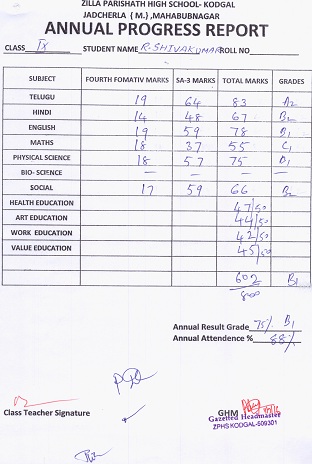 ZILLA PARISHATH HIGH SCHOOL- KODGAL
JADCHERLA ( M.) ,MAHABUBNAGAR
ANNUAL PROGRESS REPORT
CLASS IX STUDENT NAME R.SHIVAKUMAR ROLL NO
SUBJECT FOURTH FOMATIV MARKS SA-3 MARKS TOTAL MARKS GRADES
TELUGU 19 64 83 A2
HINDI 14 48 67 B2
ENGLISH 19 59 78 B1
MATHS 18 37 55 C1
PHYSICAL SCIENCE 18 57 75 B1
BIO- SCIENCE — — — —
SOCIAL 17 59 66 B2
HEALTH EDUCATION 47/50
ART EDUCATION 44/50
WORK EDUCATION 42/50
VALUE EDUCATION 45/50
602 B1
800
Annual Result Grade 75% B1
Annual Attendence % 88%
Class Teacher Signature GHM
Gazetted Headmaster
ZPHS KODGAL-509301